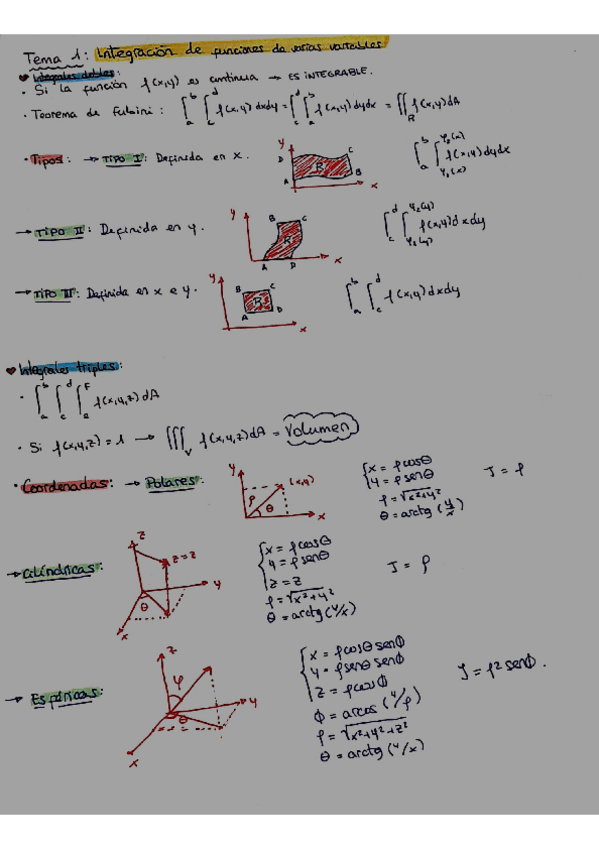 Tema 1: Integración de funciones de varias variables
♥ Integrales dobles:
· Si la función f(x,y) es continua → ES INTEGRABLE.
· Teorema de Fubini: ∫_a^b ∫_c^d f(x,y) dxdy = ∫_c^d ∫_a^b f(x,y) dydx = ∬_R f(x,y) dA
· Tipos: → TIPO I: Definida en x. y D C R A B x ∫_a^b ∫_{φ1(x)}^{φ2(x)} f(x,y) dydx
→ TIPO II: Definida en y. y B C R A D x ∫_c^d ∫ f(x,y) dxdy
→ TIPO III: Definida en x e y. y B C R A D x ∫_a^b ∫_c^d f(x,y) dxdy
♥ Integrales triples:
· ∫_a^b ∫_c^d ∫_e^F f(x,y,z) dA
· Si f(x,y,z) = 1 → ∭_V f(x,y,z) dA = Volumen
· Coordenadas: → Polares: y ρ θ (x,y) x
x = ρcosθ
y = ρsenθ
ρ = √x²+y²
θ = arctg(y/x)
J = ρ
→ Cilíndricas: z z=z y θ x
x = ρcosθ
y = ρsenθ
z = z
ρ = √x²+y²
θ = arctg(y/x)
J = ρ
→ Esféricas: z φ y θ x
x = ρcosθ senϕ
y = ρsenθ senϕ
z = ρcosϕ
ϕ = arcos(y/ρ)
ρ = √x²+y²+z²
θ = arctg(y/x)
J = ρ² senϕ.